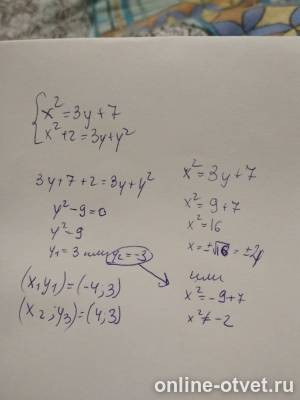 x² = 3y + 7
x² + 2 = 3y + y²
3y + 7 + 2 = 3y + y²
y² - 9 = 0
y² - 9
y₁ = 3 или y₂ = -3
(x₁ y₁) = (-4, 3)
(x₂; y₃) = (4, 3)
x² = 3y + 7
x² = 9 + 7
x² = 16
x = ±√16 = ±4
или
x² = -9 + 7
x² ≠ -2
online-otvet.ru